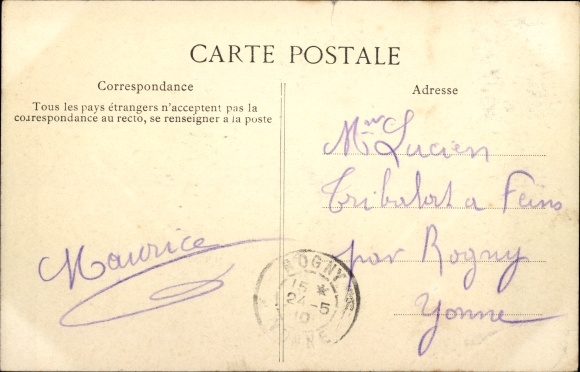 CARTE POSTALE
Correspondance
Tous les pays étrangers n'acceptent pas la
correspondance au recto, se renseigner à la poste
Maurice
Adresse
Mr Lucien
Tribalat a Feins
par Rogny
Yonne
ROGNY
15 *
24-5
10
YONNE